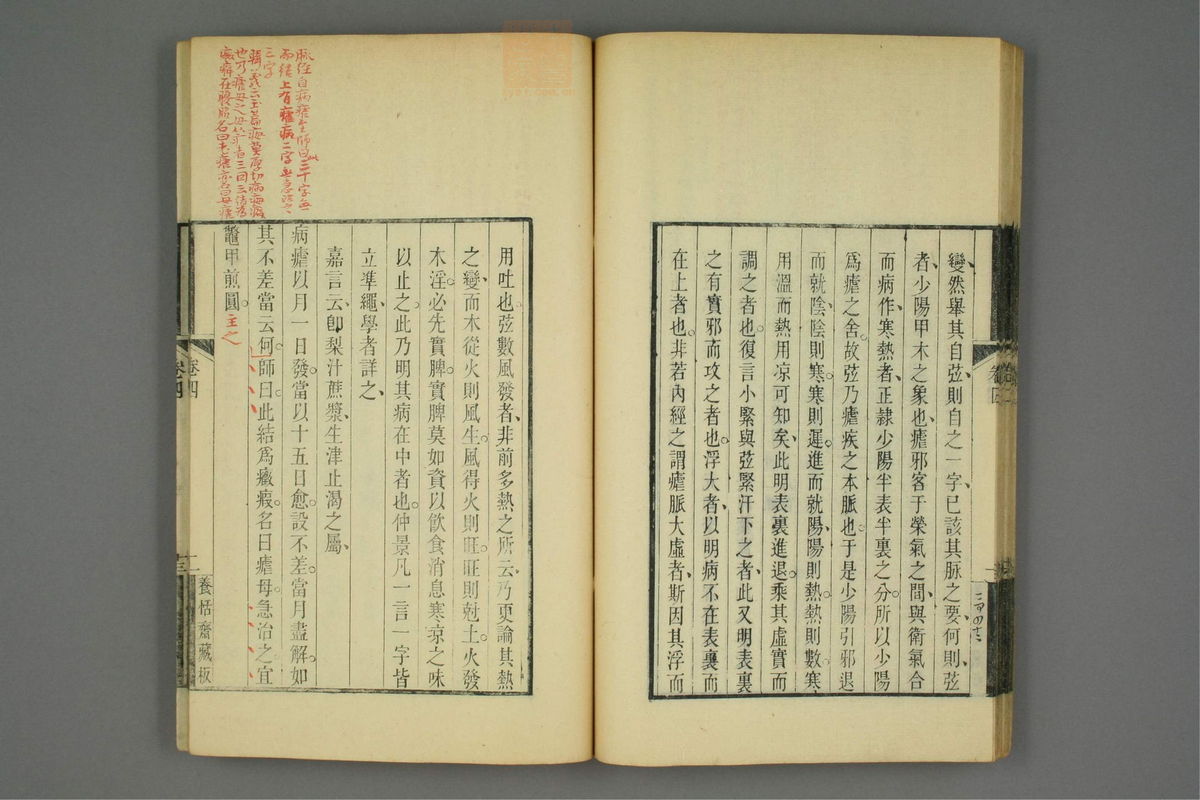 變然舉其自弦則自之一字已該其脉之要何則弦
者少陽甲木之象也瘧邪客于榮氣之間與衛氣合
而病作寒熱者正隸少陽半表半裏之分所以少陽
爲瘧之舍故弦乃瘧疾之本脈也于是少陽引邪退
而就陰陰則寒寒則遲進而就陽陽則熱熱則數寒
用溫而熱用凉可知矣此明表裏進退乘其虛實而
調之者也復言小緊與弦緊汗下之者此又明表裏
之有實邪而攻之者也浮大者以明病不在表裏而
在上者也非若內經之謂瘧脈大虛者斯因其浮而
卷四
用吐也弦數風發者非前多熱之所云乃更論其熱
之變而木從火則風生風得火則旺旺則尅土火發
木淫必先實脾實脾莫如資以飮食消息寒凉之味
以止之此乃明其病在中者也仲景凡一言一字皆
立準繩學者詳之
嘉言云卽梨汁蔗漿生津止渴之屬
病瘧以月一日發當以十五日愈設不差當月盡解如
其不差當云何師曰此結爲癥瘕名曰瘧母急治之宜
鼈甲煎圓主之
卷四
養恬齋藏板
脈經自病瘧至師曰二十字無
而結上有瘧病二字無急治之
三字